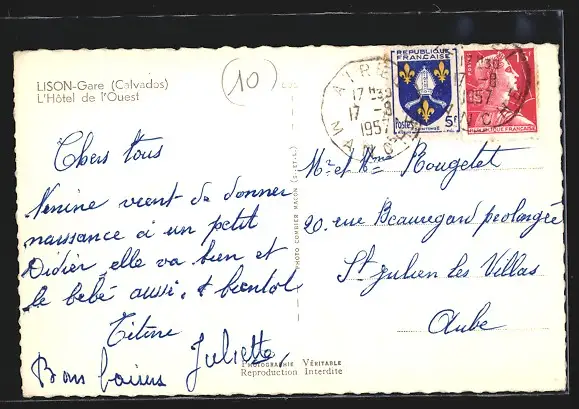 LISON-Gare (Calvados)
L'Hôtel de l'Ouest
(10)
Chers tous
Nenine vient de donner
naissance à un petit
Didier, elle va bien et
le bébé aussi, à bientot
Titine
Juliette,
Bons baisers
PHOTO COMBIER MACON
PHOTOGRAPHIE VÉRITABLE
Reproduction Interdite
REPUBLIQUE
FRANÇAISE
Postes
5F
SAINTONGE
15F
POSTES
REPUBLIQUE FRANÇAISE
AIREL
17H30
17-8
1957
MANCHE
17-8
1957
MANCHE
Mr et Mme Rougelet
20. rue Beauregard prolongée
St julien les Villas
Aube